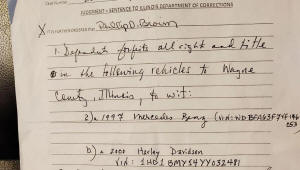 JUDGMENT - SENTENCE TO ILLINOIS DEPARTMENT OF CORRECTIONS
X IT IS FURTHER ORDERED THAT Phillip D. Brown
1. Defendant forfeits all right and title
in the following vehicles to Wayne
County, Illinois, to wit:
a) a 1997 Mercedes Benz (VIN: WDBFA63F7VF146
253
b) a 2000 Harley Davidson
VIN: 1HD1BMY54YY032481